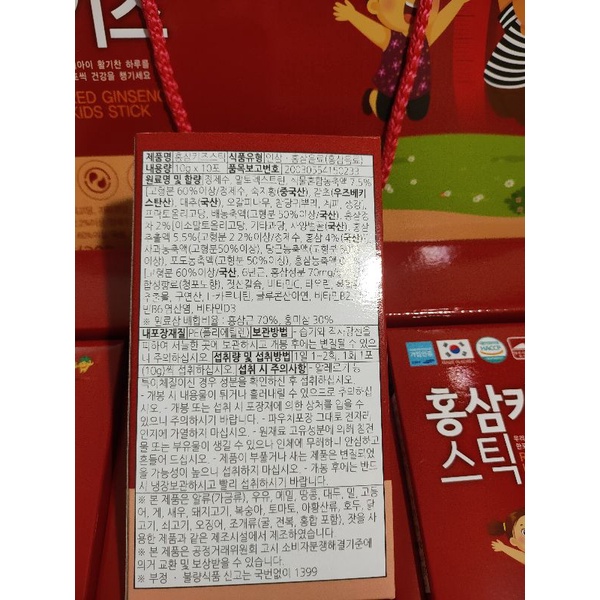 키즈
아이 활기찬 하루를
씩 건강을 챙기세요
RED GINSENG
KIDS STICK
제품명 홍삼키즈스틱 식품유형 인삼·홍삼음료(홍삼음료)
내용량 10g x 10포 품목보고번호
원료명 및 함량 정제수, 말토덱스트린, 식물혼합농축액 7.5%
[고형분 60%이상/정제수, 숙지황(중국산), 감초(우즈베키
스탄산), 대추(국산), 오갈피나무,
프락토올리고당, 배농축액(고형분
2%[이소말토올리고당, 기타과당, 홍삼
추출액 5.5%[고형분 2.2%이상/정제수, 홍삼 4%(국산)],
사과농축액(고형분50%이상), 당근농축액(고형분
포도농축액(고형분 50%이상), 홍삼농축액
[고형분 60%이상/국산, 6년근, 홍삼성분 70mg/g
합성향료(청포노향), 젖산칼슘, 비타민C, 타우린,
구연산, L-카르니틴, 글루콘산아연, 비타민B2,
민B6염산염, 비타민D3
※ 원료삼 배합비율 : 홍삼근 70%, 홍미삼 30%
내포장재질 PE(폴리에틸렌) 보관방법 - 습기와 직사광선을
피하여 서늘한 곳에 보관하시고 개봉 후에는 변질될 수 있으
니 주의하십시오 섭취량 및 섭취방법 1일 1~2회, 1회 1포
(10g)씩 섭취하십시오 섭취 시 주의사항 - 알레르기 등
특이체질이신 경우 성분을 확인하신 후 섭취하십시오.
- 개봉 시 내용물이 튀거나 흘러내릴 수 있으므로 주의하십
시오. - 개봉 또는 섭취 시 포장재에 의한 상처를 입을 수
있으니 주의하시기 바랍니다. - 파우치포장 그대로 전자레
인지에 가열하지 마십시오. - 원재료 고유성분에 의해 침전
물 또는 부유물이 생길 수 있으나 인체에 무해하니 안심하고
흔들어 드십시오. - 제품이 부풀거나 새는 제품은 변질되었
을 가능성이 높으니 섭취하지 마십시오. - 개봉 후에는 반드
시 냉장보관하시고 빨리 섭취하시기 바랍니다.
※ 본 제품은 알류(가금류), 우유, 메밀, 땅콩, 대두, 밀, 고등
어, 게, 새우, 돼지고기, 복숭아, 토마토, 아황산류, 호두, 닭
고기, 쇠고기, 오징어, 조개류(굴, 전복, 홍합 포함), 잣을 사
용한 제품과 같은 제조시설에서 제조하였습니다
※ 본 제품은 공정거래위원회 고시 소비자분쟁해결기준에
의거 교환 및 보상받을 수 있습니다.
※ 부정·불량식품 신고는 국번없이 1399
HACCP
홍삼키
스틱